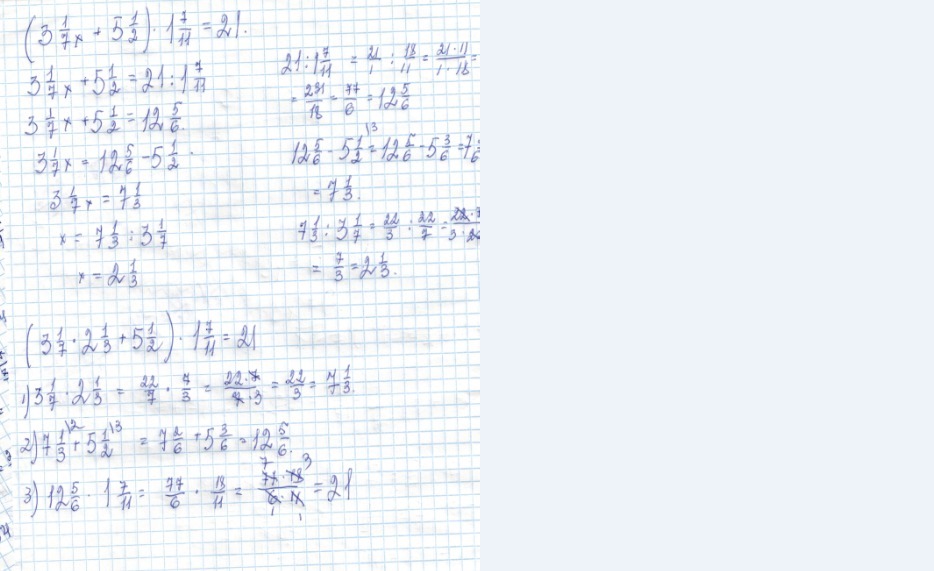 (3 1/7 x + 5 1/2) · 1 7/11 = 21.
3 1/7 x + 5 1/2 = 21 : 1 7/11
3 1/7 x + 5 1/2 = 12 5/6.
3 1/7 x = 12 5/6 - 5 1/2.
3 1/7 x = 7 1/3
x = 7 1/3 : 3 1/7
x = 2 1/3
21 : 1 7/11 = 21/1 : 18/11 = 21·11/1·18 =
= 231/18 = 77/6 = 12 5/6
12 5/6 - 5 1/2 \3 = 12 5/6 - 5 3/6 = 7
= 7 1/3.
7 1/3 : 3 1/7 = 22/3 : 22/7 =
= 7/3 = 2 1/3.
(3 1/7 · 2 1/3 + 5 1/2) · 1 7/11 = 21
1) 3 1/7 · 2 1/3 = 22/7 · 7/3 = 22·7/7·3 = 22/3 = 7 1/3.
2) 7 1/3 \2 + 5 1/2 \3 = 7 2/6 + 5 3/6 = 12 5/6.
3) 12 5/6 · 1 7/11 = 77/6 · 18/11 = 77·18/6·11 = 21